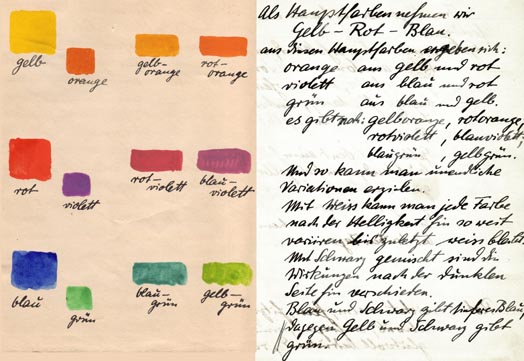 gelb
orange
gelb-
orange
rot-
orange
rot
violett
rot-
violett
blau-
violett
blau
grün
blau-
grün
gelb-
grün
Als Hauptfarben nehmen wir
Gelb – Rot – Blau.
aus diesen Hauptfarben ergeben sich:
orange aus gelb und rot
violett aus blau und rot
grün aus blau und gelb.
es gibt noch: gelborange, rotorange,
rotviolett, blauviolett,
blaugrün, gelbgrün.
Und so kann man unendliche
Variationen erzielen.
Mit Weiss kann man jede Farbe
nach der Helligkeit hin so weit
variieren bis zuletzt weiss bleibt.
Mit Schwarz gemischt sind die
Wirkungen nach der dunklen
Seite hin verschieden.
Blau und Schwarz gibt tieferes Blau,
dagegen Gelb und Schwarz gibt
grün.